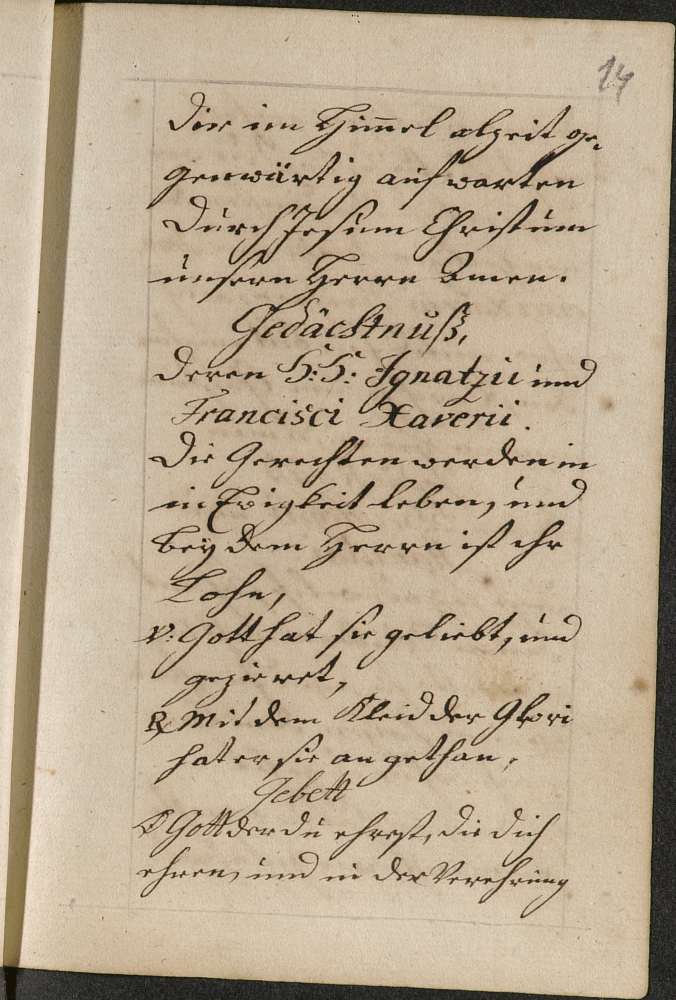 14
dir im Himel alzeit ge-
genwärtig aufwarten
durch Jesum Christum
unsern Herrn Amen.
Gedächtnuß,
deren H:H: Ignatzii und
Francisci Xaverii.
Die Gerechten werden in
in Ewigkeit leben, und
bey dem Herrn ist ihr
Lohn,
V: Gott hat sie geliebt, und
gezieret,
R Mit dem Kleid der Glori
hat er sie angethan,
Gebett
O Gott der du ehrest, die dich
ehren, und in der Verehrung